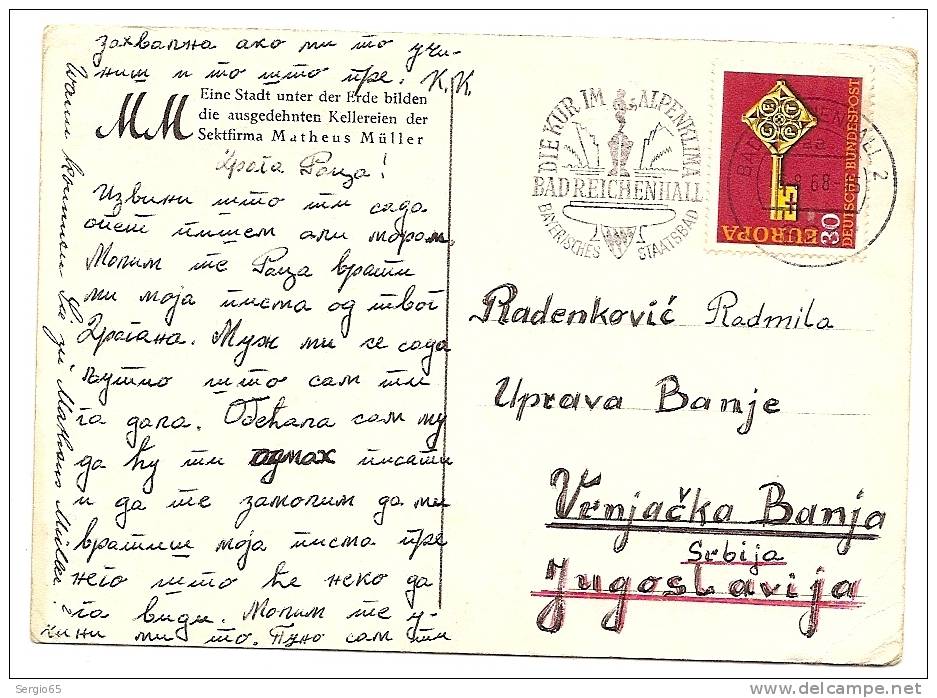 захвална ако ми то учи-
ниш и то што пре. К.К.
MM
Eine Stadt unter der Erde bilden
die ausgedehnten Kellereien der
Sektfirma Matheus Müller
Драга Роза!
Извини што ти сада
опет пишем али морам.
Молим те Роза врати
ми моја писма од твог
Драгана. Муж ми се сада
љутио што сам ти
га дала. Обећала сам му
да ћу ти одмах писати
и да те замолим да ми
вратиш моја писма пре
него што ће неко да
га види. Молим те у-
чини ми то. Пуно сам ти
Wann kommen Sie zu Matheus Müller?
DIE KUR IM ALPENKLIMA
BAD REICHENHALL
BAYERISCHES STAATSBAD
BAD REICHENHALL 2
68
30
EUROPA
DEUTSCHE BUNDESPOST
Radenković Radmila
Uprava Banje
Vrnjačka Banja
Srbija
Jugoslavija
Sergio65
http://www.delcampe.net